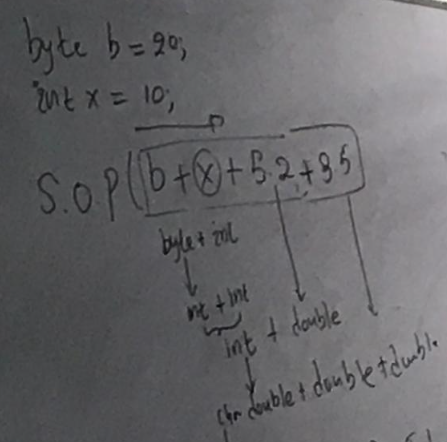 byte b = 20;
int x = 10;
S.O.P(b + x + 5.2 + 35
byte + int
int + int
int + double
double + double + double